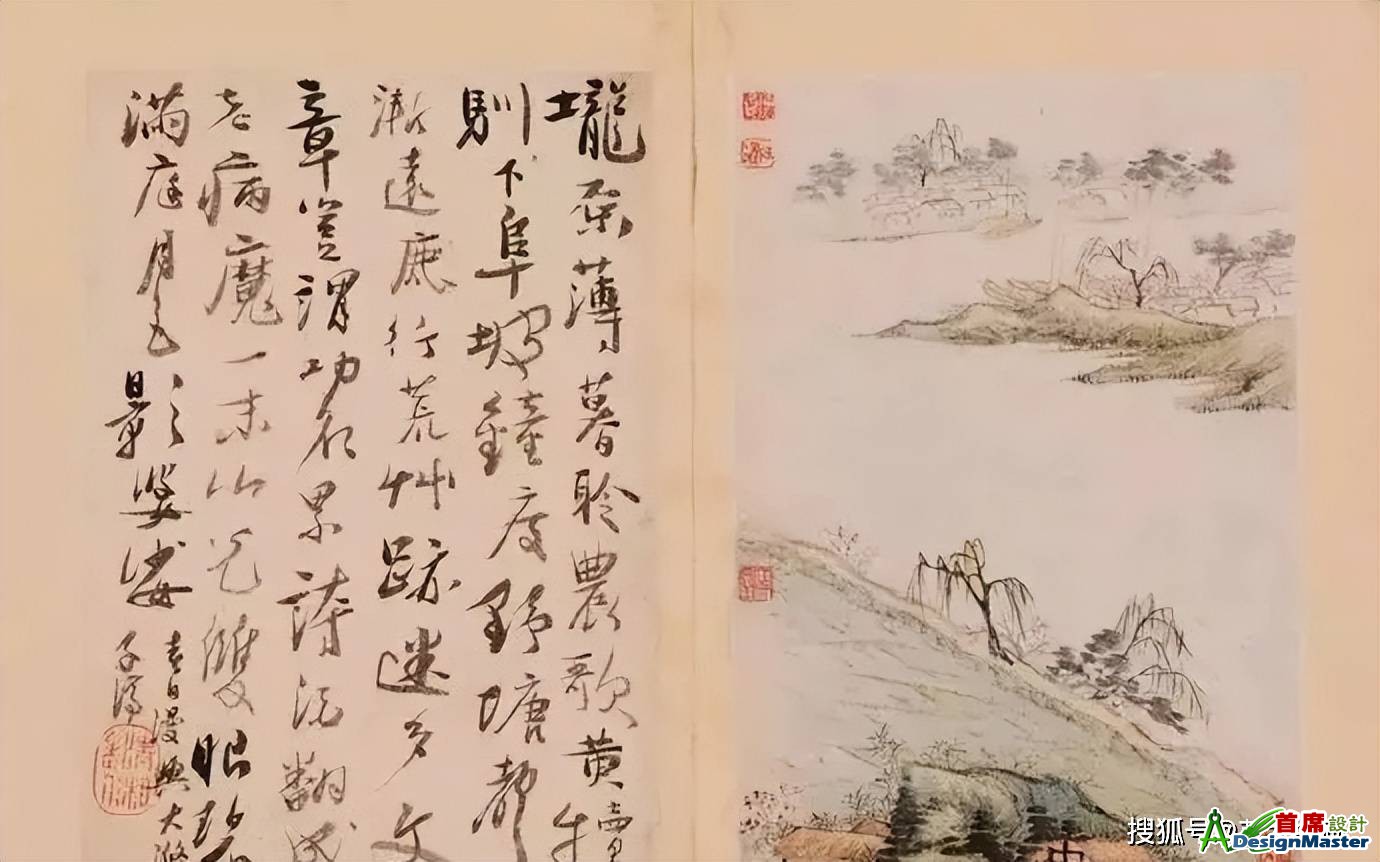 壠薄暮聆農歌黃犢
馴下阜坡鐘度野塘
漸遠鹿行荒艸跡迷多文
章豈謂功名累詩酒翻成
老病魔一末山光雙眼
滿庭月色影婆娑
春日漫興大滌
子濟
搜狐号@
首席設計
ADesignMaster